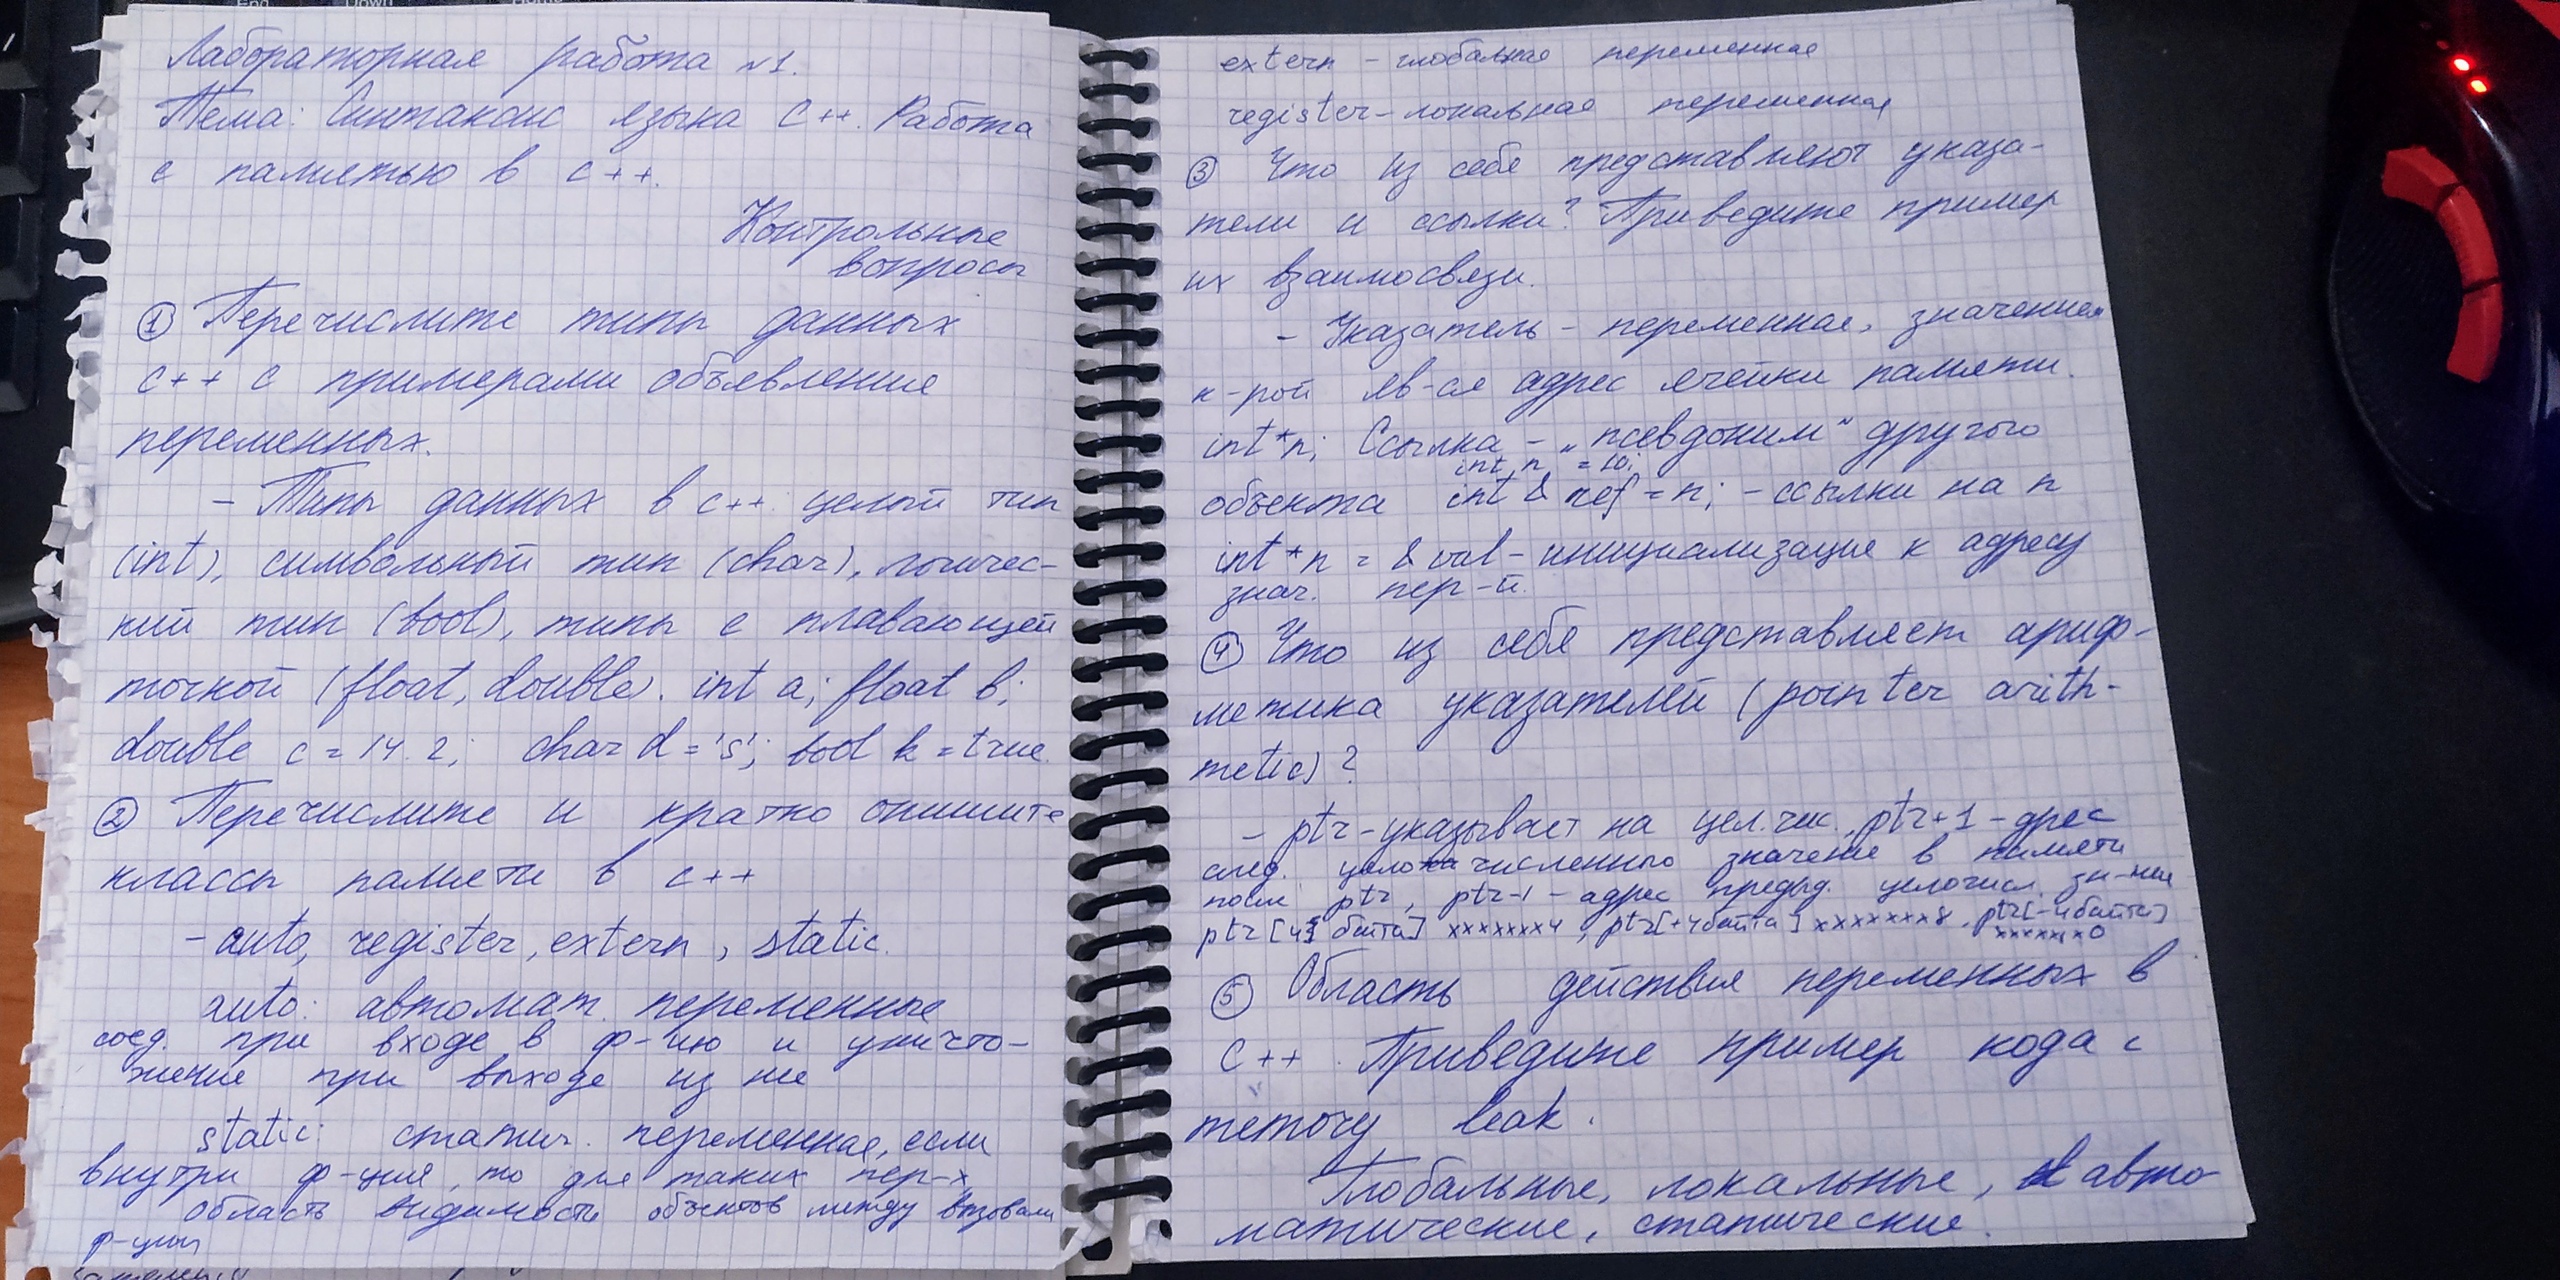 Лабораторная работа №1.
Тема: Синтаксис языка C++. Работа
с памятью в C++.
Контрольные
вопросы
① Перечислите типы данных
C++ с примерами объявления
переменных.
- Типы данных в C++: целый тип
(int), символьный тип (char), логичес-
кий тип (bool), типы с плавающей
точкой (float, double). int a; float b;
double c = 14.2; char d = 's'; bool k = true.
② Перечислите и кратко опишите
классы памяти в C++
- auto, register, extern, static.
auto: автомат. переменные
созд. при входе в ф-цию и уничто-
жение при выходе из нее
static: статич. переменная, если
внутри ф-ция, то для таких пер-х
область видимости объектов между вызовами
ф-ции
extern - глобальная переменная
register - локальная переменная
③ Что из себя представляют указа-
тели и ссылки? Приведите пример
их взаимосвязи.
- Указатель - переменная, значением
к-рой яв-ся адрес ячейки памяти.
int *n; Ссылка - „псевдоним" другого
int n = 10;
объекта int & ref = n; - ссылка на n
int *n = & val - инициализация к адресу
знач. пер-й.
④ Что из себя представляет ариф-
метика указателей (pointer arith-
metic)?
- ptr - указывает на цел. чис., ptr+1 - дрес
след. целочисленного значение в памяти
после ptr, ptr-1 - адрес предыд. целочисл. зн-ния
ptr [4 байта] xxxxxxx4, ptr[+4байта] xxxxxxx8, ptr[-4байта]
xxxxxx0
⑤ Область действия переменных в
C++. Приведите пример кода с
memory leak.
Глобальные, локальные, авто
матические, статические.